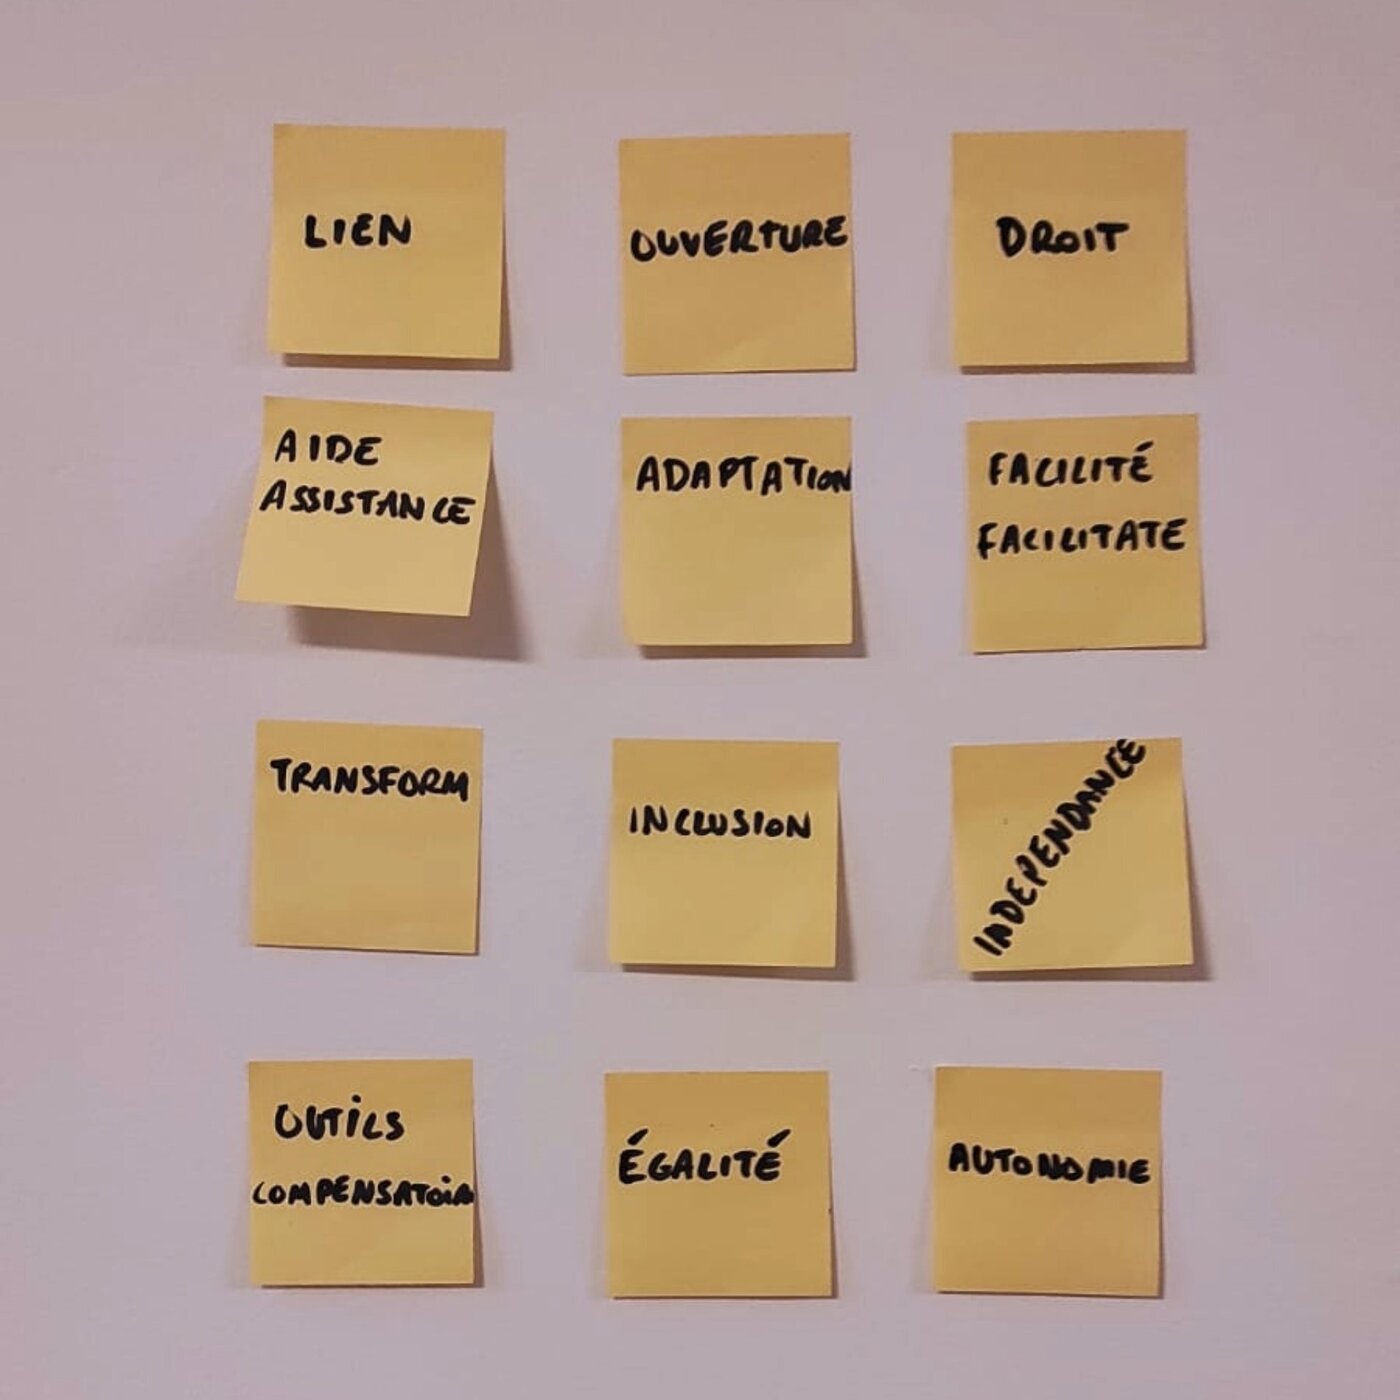 LIEN
OUVERTURE
DROIT
AIDE
ASSISTANCE
ADAPTATION
FACILITÉ
FACILITATE
TRANSFORM
INCLUSION
INDEPENDANCE
OUTILS
COMPENSATOIR
ÉGALITÉ
AUTONOMIE